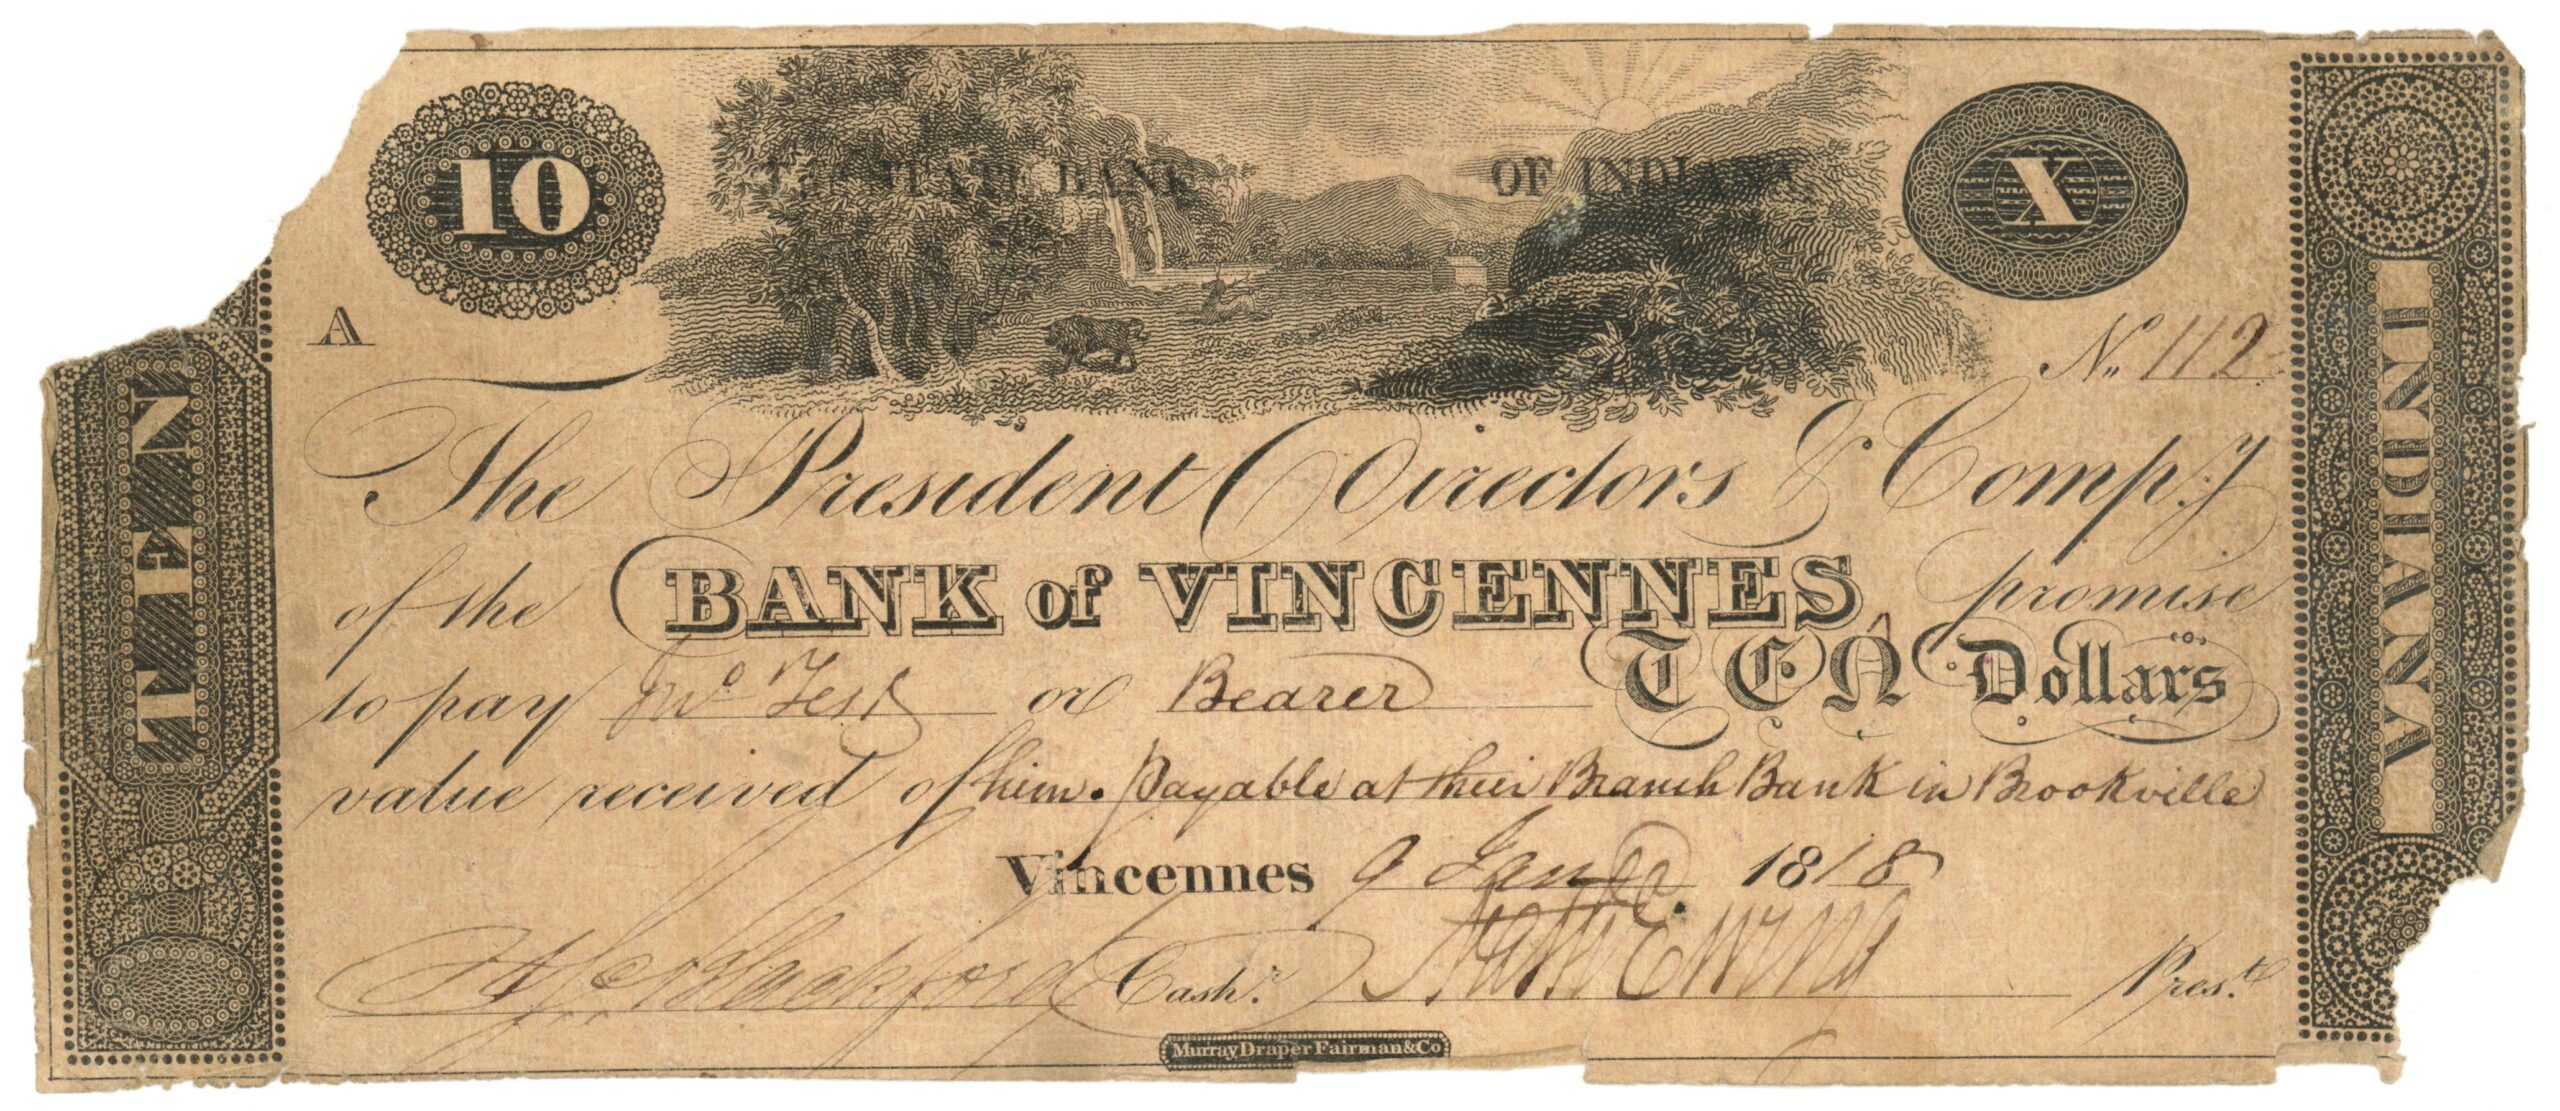 10
THE STATE BANK OF INDIANA
X
A
No. 112
The President Directors & Comp.y
of the BANK of VINCENNES promise
to pay Jno Test or Bearer TEN Dollars
value received of him. Payable at their Branch Bank in Brookville
Vincennes 9 Jany 1818
Blackford Cash.r Nath Ewing Pres.t
Murray Draper Fairman & Co
TEN
INDIANA